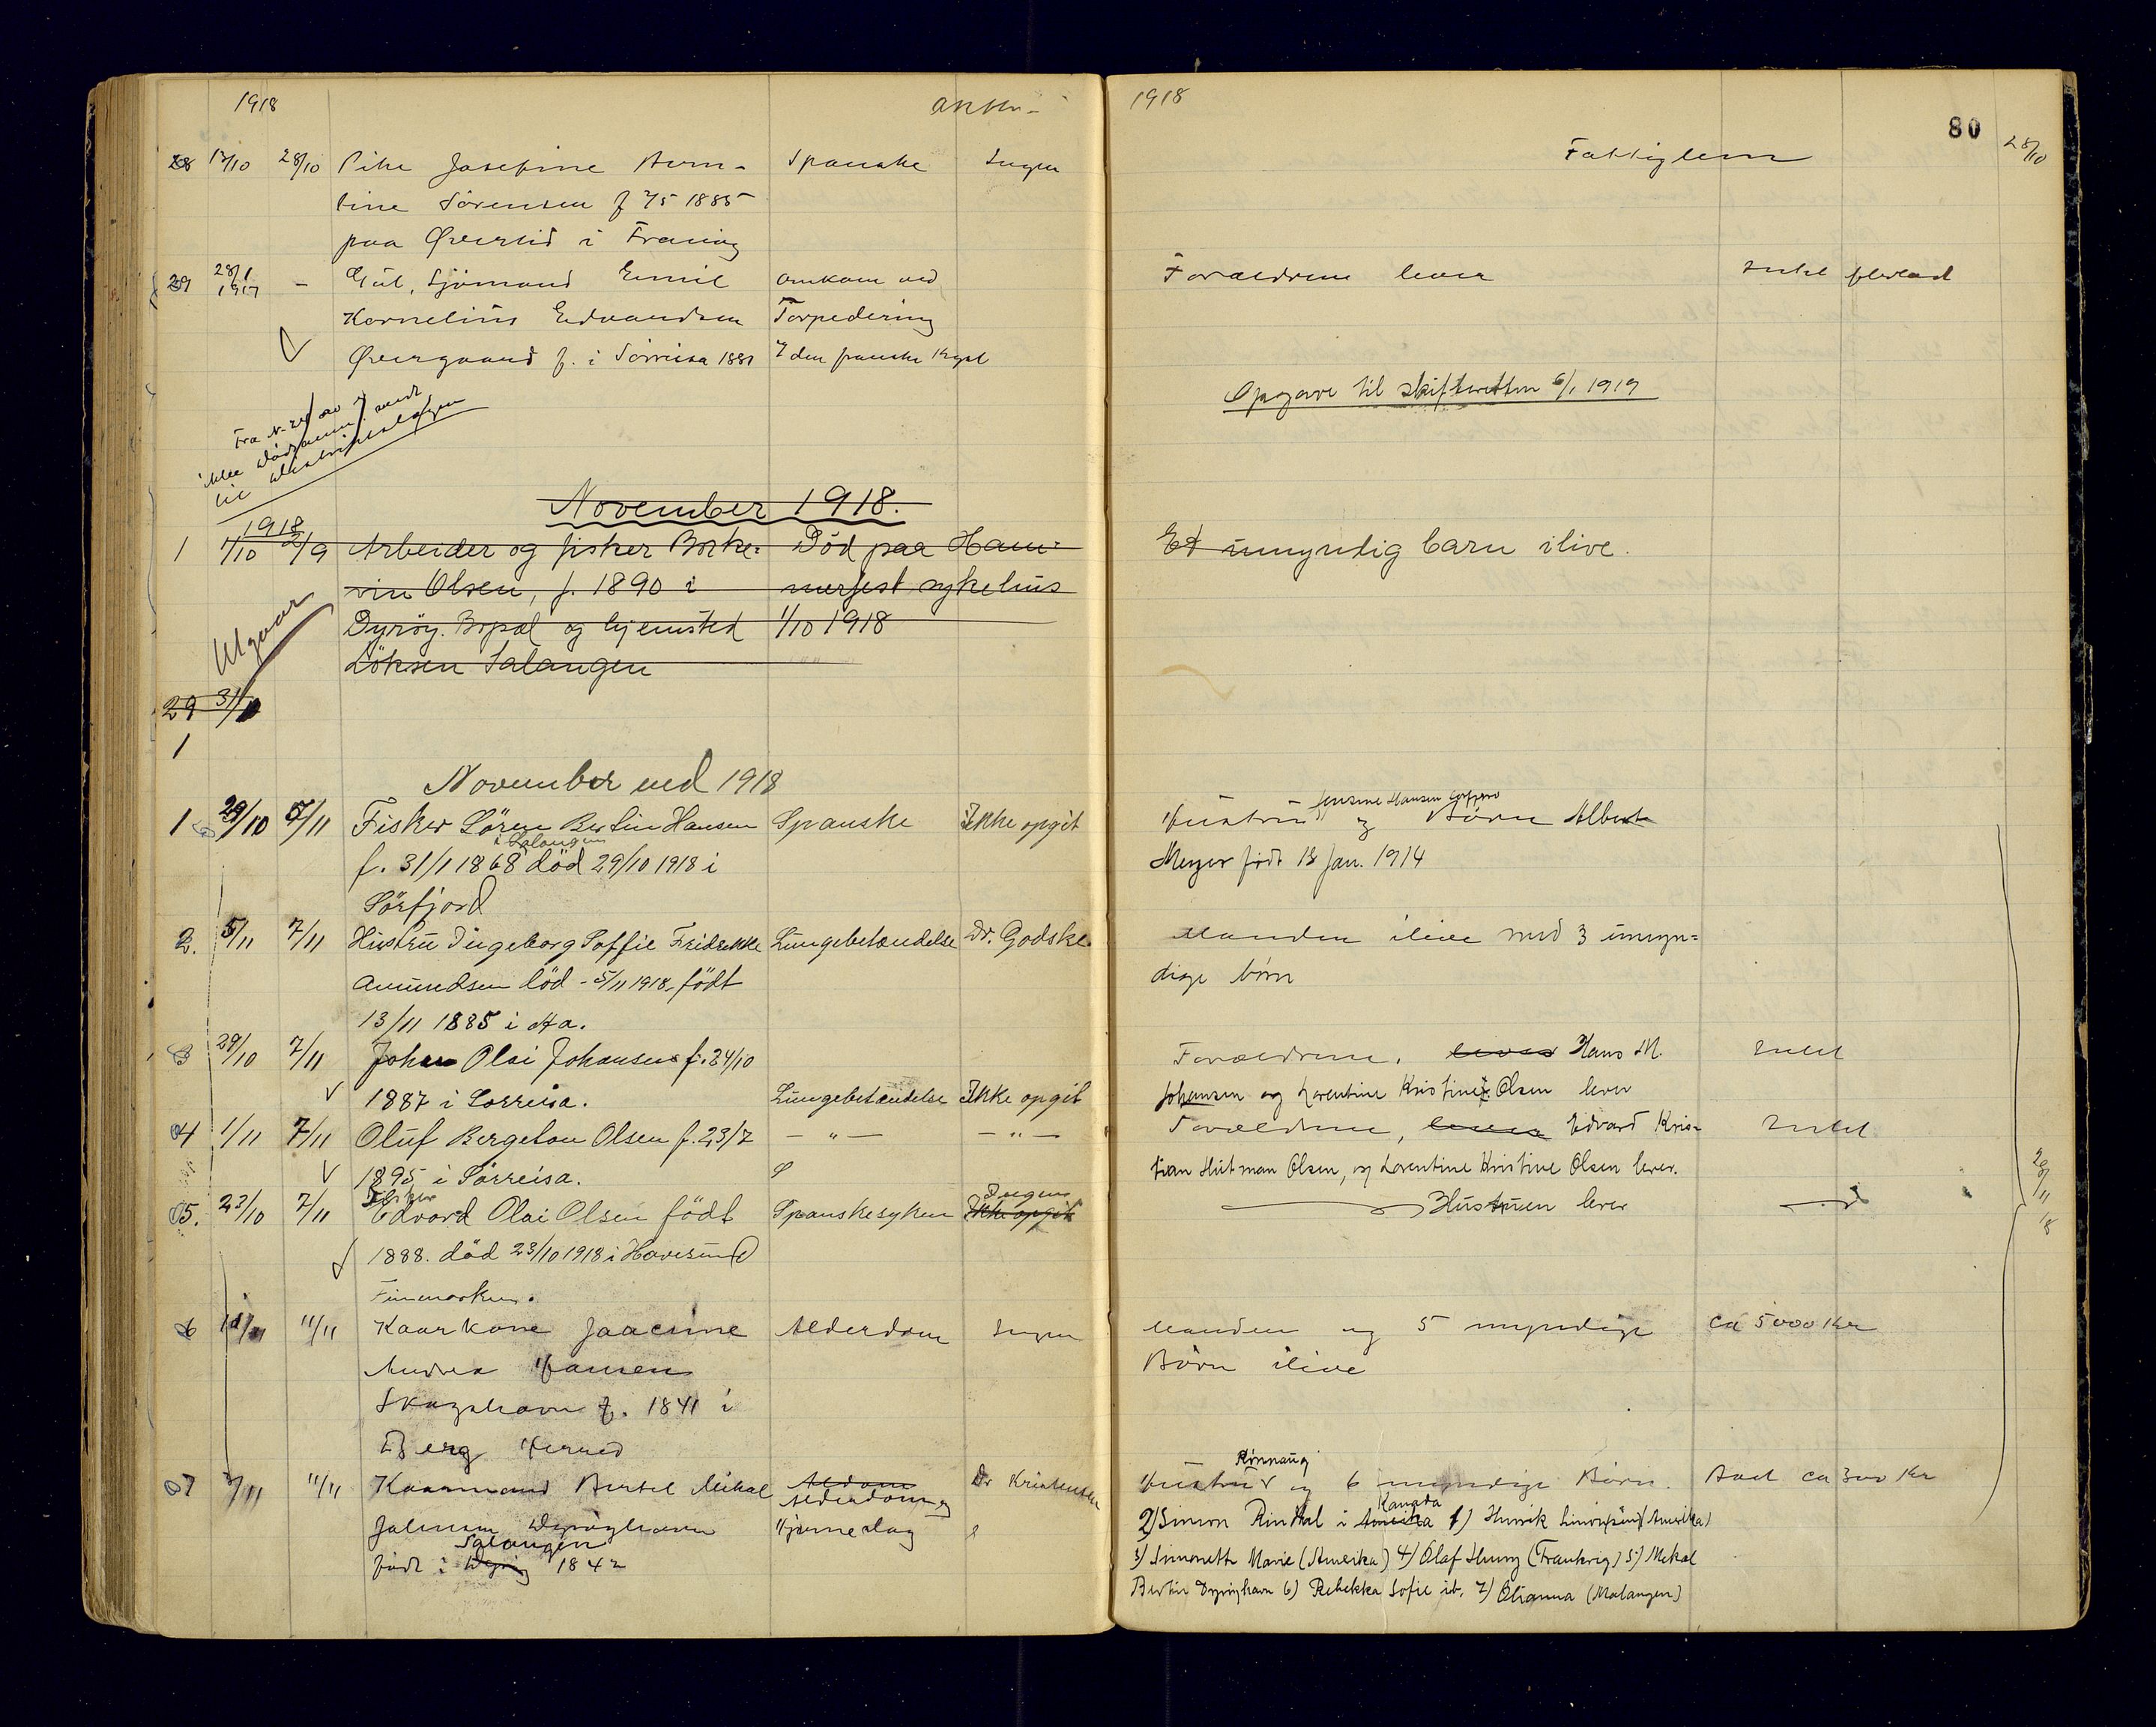 1918
1918
80
28 12/10 28/10 Pike Josefine Spanske Ingen Fattiglem 28/10
Sörensen f 1885
paa i
29 28/1 1917 - Sjömand Emil omkom ved Foræeldrene lever intet
Kornelius Edvardsen Torpedering
Övergaard f. i Sörreisa 1881 den Kyst
Opgave til skifteretten 6/1 1919
November 1918.
1918
1 1/10 2/9 Arbeider og fisker Död paa Ham- Et umyndig barn ilive.
Olsen, f. 1890 i merfest sykehus
Dyröy. Bopæl og hjemsted 1/10 1918
Löksen Salangen
Utgaar
29 31/10
1
November md 1918
Jensine Hansen
1 29/10 5/11 Fisker Sören Bertin Hansen Spanske Ikke opgit Hustru og Börn Albert
i Salangen
f. 31/1 1868 död 29/10 1918 i Meyer född 18 Jan. 1914
Sörfjord
2. 5/11 7/11 Hustru Ingeborg Soffie Fridrekke Lungebetændelse Dr. Godske Manden ilive med 3 umyn=
Amundsen död - 5/11 1918, födt dige börn
13/11 1885 i
3 29/10 7/11 Johan Olai Johansen f. 24/10 Forældrene. lever Hans M. Intet
1887 i Sorreisa. Lungebetændelse Ikke opgit Johansen og Lorentine Kristine Olsen lever
4 1/11 7/11 Oluf Bergeton Olsen f. 23/7 - " - - " - Forældrene, lever Edvard Kris- Intet
1895 i Sörreisa. tian Hutman Olsen, og Lorentine Kristine Olsen lever.
Fisker Ingen
5. 23/10 7/11 Edvard Olai Olsen födt Spanskesyken Ikke opgit Hustruen lever
1888. död 23/10 1918 i Havösund
Finmarken.
28/11 18
6 11/11 Kaarkone Jaacine Alderdom Ingen Manden og 5 myndige Ca 5000 Kr
Andrea Hansen Börn ilive
Skogshavn f. 1841 i
Berg Herred
Rönnaug
7 7/11 11/11 Kaarmand Bertel Mikal Aldom Dr Kristensen Hustru og 6 myndige Börn. ca 300 Kr
Alderdom og
Kanada
Johnsen Dyröyhavn Hjerneslag 2) Simon Rindal i Amerika 1) Henrik (Amerika)
Salangen
födt i Dyröy 1842 3) Simonette Marie (Amerika) 4) Olaf (Frankrig) 5) Mekal
Bertin Dyröyhavn 6) Rebekka Sofie ib. 7) Olianna (Malangen)